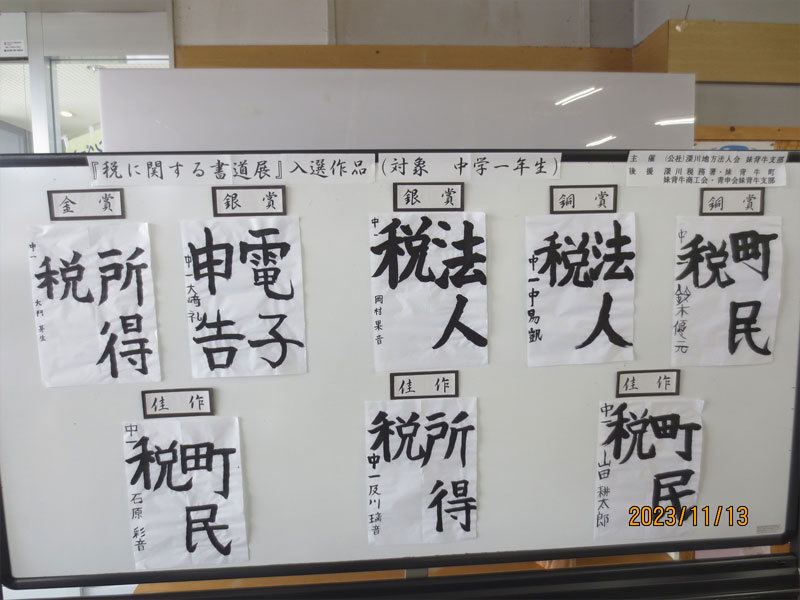 『税に関する書道展』入選作品 (対象 中学一年生)
主催 (公社)深川地方法人会 妹背牛支部
後援 深川税務署・妹背牛町
妹背牛商工会・青申会妹背牛支部
金賞
所得税
中一
銀賞
電子申告
中一 大崎 礼
銀賞
法人税
中一
岡村 果音
銅賞
法人税
中一 中易 凱
銅賞
町民税
中一
鈴木 優元
佳作
町民税
中一
石原 彩音
佳作
所得税
中一 及川 璃音
佳作
町民税
中一 山田 耕太郎
2023/11/13